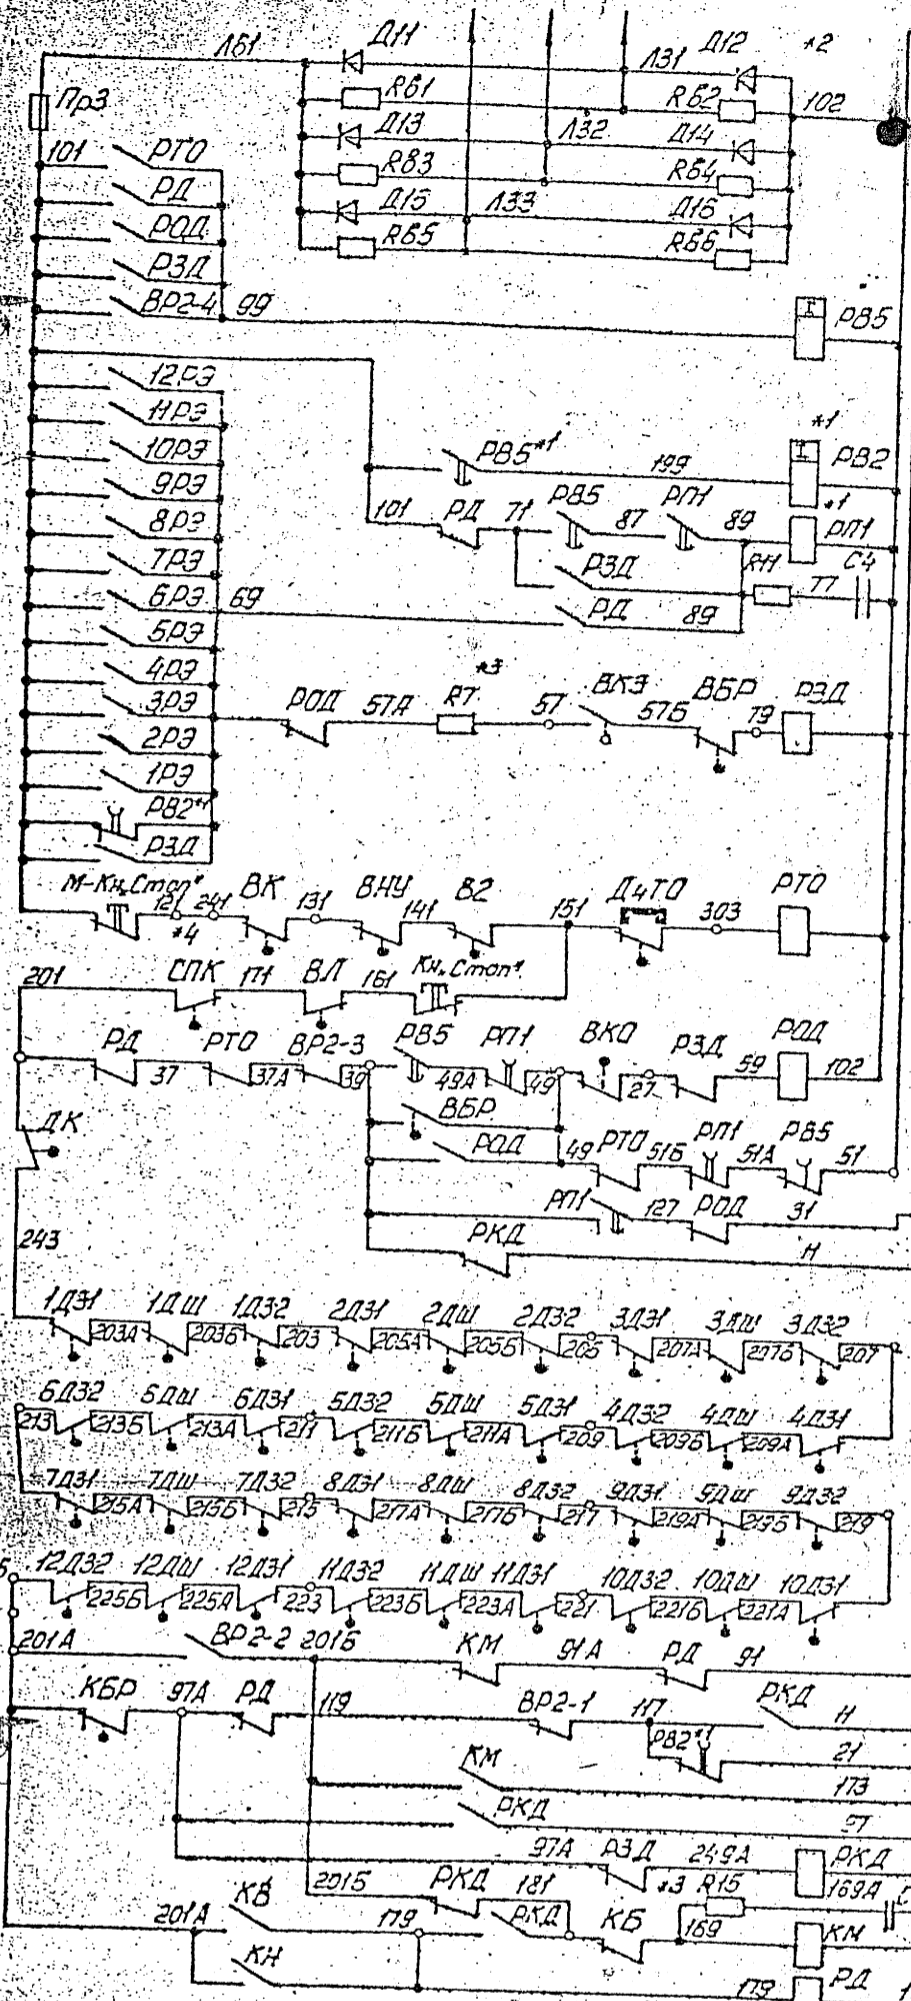 Л61 Д11 Л31 Д12 *2
Пр3 R61 R62 102
Д13 Л32 Д14
101 РТО R83 R64
РД Д15 Л33 Д16
РОД R65 R66
РЗД
ВР2-4 99 РВ5
12РЭ
11РЭ *1
10РЭ РВ5*1 199 РВ2
9РЭ *1
101 РД 71 РВ5 87 РП1 89 РП1
8РЭ
7РЭ РЗД R11 77 С4
6РЭ 69 РД 89
5РЭ
4РЭ *3
3РЭ РОД 57А R7 57 ВКЭ 57Б ВБР 79 РЗД
2РЭ
1РЭ
РВ2*1
РЗД
М-Кн„Стоп" 121 241 ВК 131 ВНУ 141 В2 151 Д4ТО 303 РТО
*4
201 СПК 171 ВЛ 161 Кн„Стоп"
РД 37 РТО 37А ВР2-3 39 РВ5 49А РП1 49 ВКО 27 РЗД 59 РОД 102
ДК ВБР
РОД 49 РТО 51Б РП1 51А РВ5 51
РП1 127 РОД 31
243 РКД Н
1ДЗ1 1ДШ 1ДЗ2 2ДЗ1 2ДШ 2ДЗ2 3ДЗ1 3ДШ 3ДЗ2
203А 203Б 203 205А 205Б 205 207А 207Б 207
6ДЗ2 6ДШ 6ДЗ1 5ДЗ2 5ДШ 5ДЗ1 4ДЗ2 4ДШ 4ДЗ1
213 213Б 213А 211 211Б 211А 209 209Б 209А
7ДЗ1 7ДШ 7ДЗ2 8ДЗ1 8ДШ 8ДЗ2 9ДЗ1 9ДШ 9ДЗ2
215А 215Б 215 217А 217Б 217 219А 219Б 219
12ДЗ2 12ДШ 12ДЗ1 11ДЗ2 11ДШ 11ДЗ1 10ДЗ2 10ДШ 10ДЗ1
225Б 225А 223 223Б 223А 221 221Б 221А
201А ВР2-2 201Б КМ 91А РД 91
КБР 97А РД 119 ВР2-1 117 РКД Н
РВ2*1 21
КМ 173
РКД 97
97А РЗД 249А РКД
201Б РКД 181 *3 R15 169А
201А КВ 179 РКД КБ 169 КМ
КН 179 РД